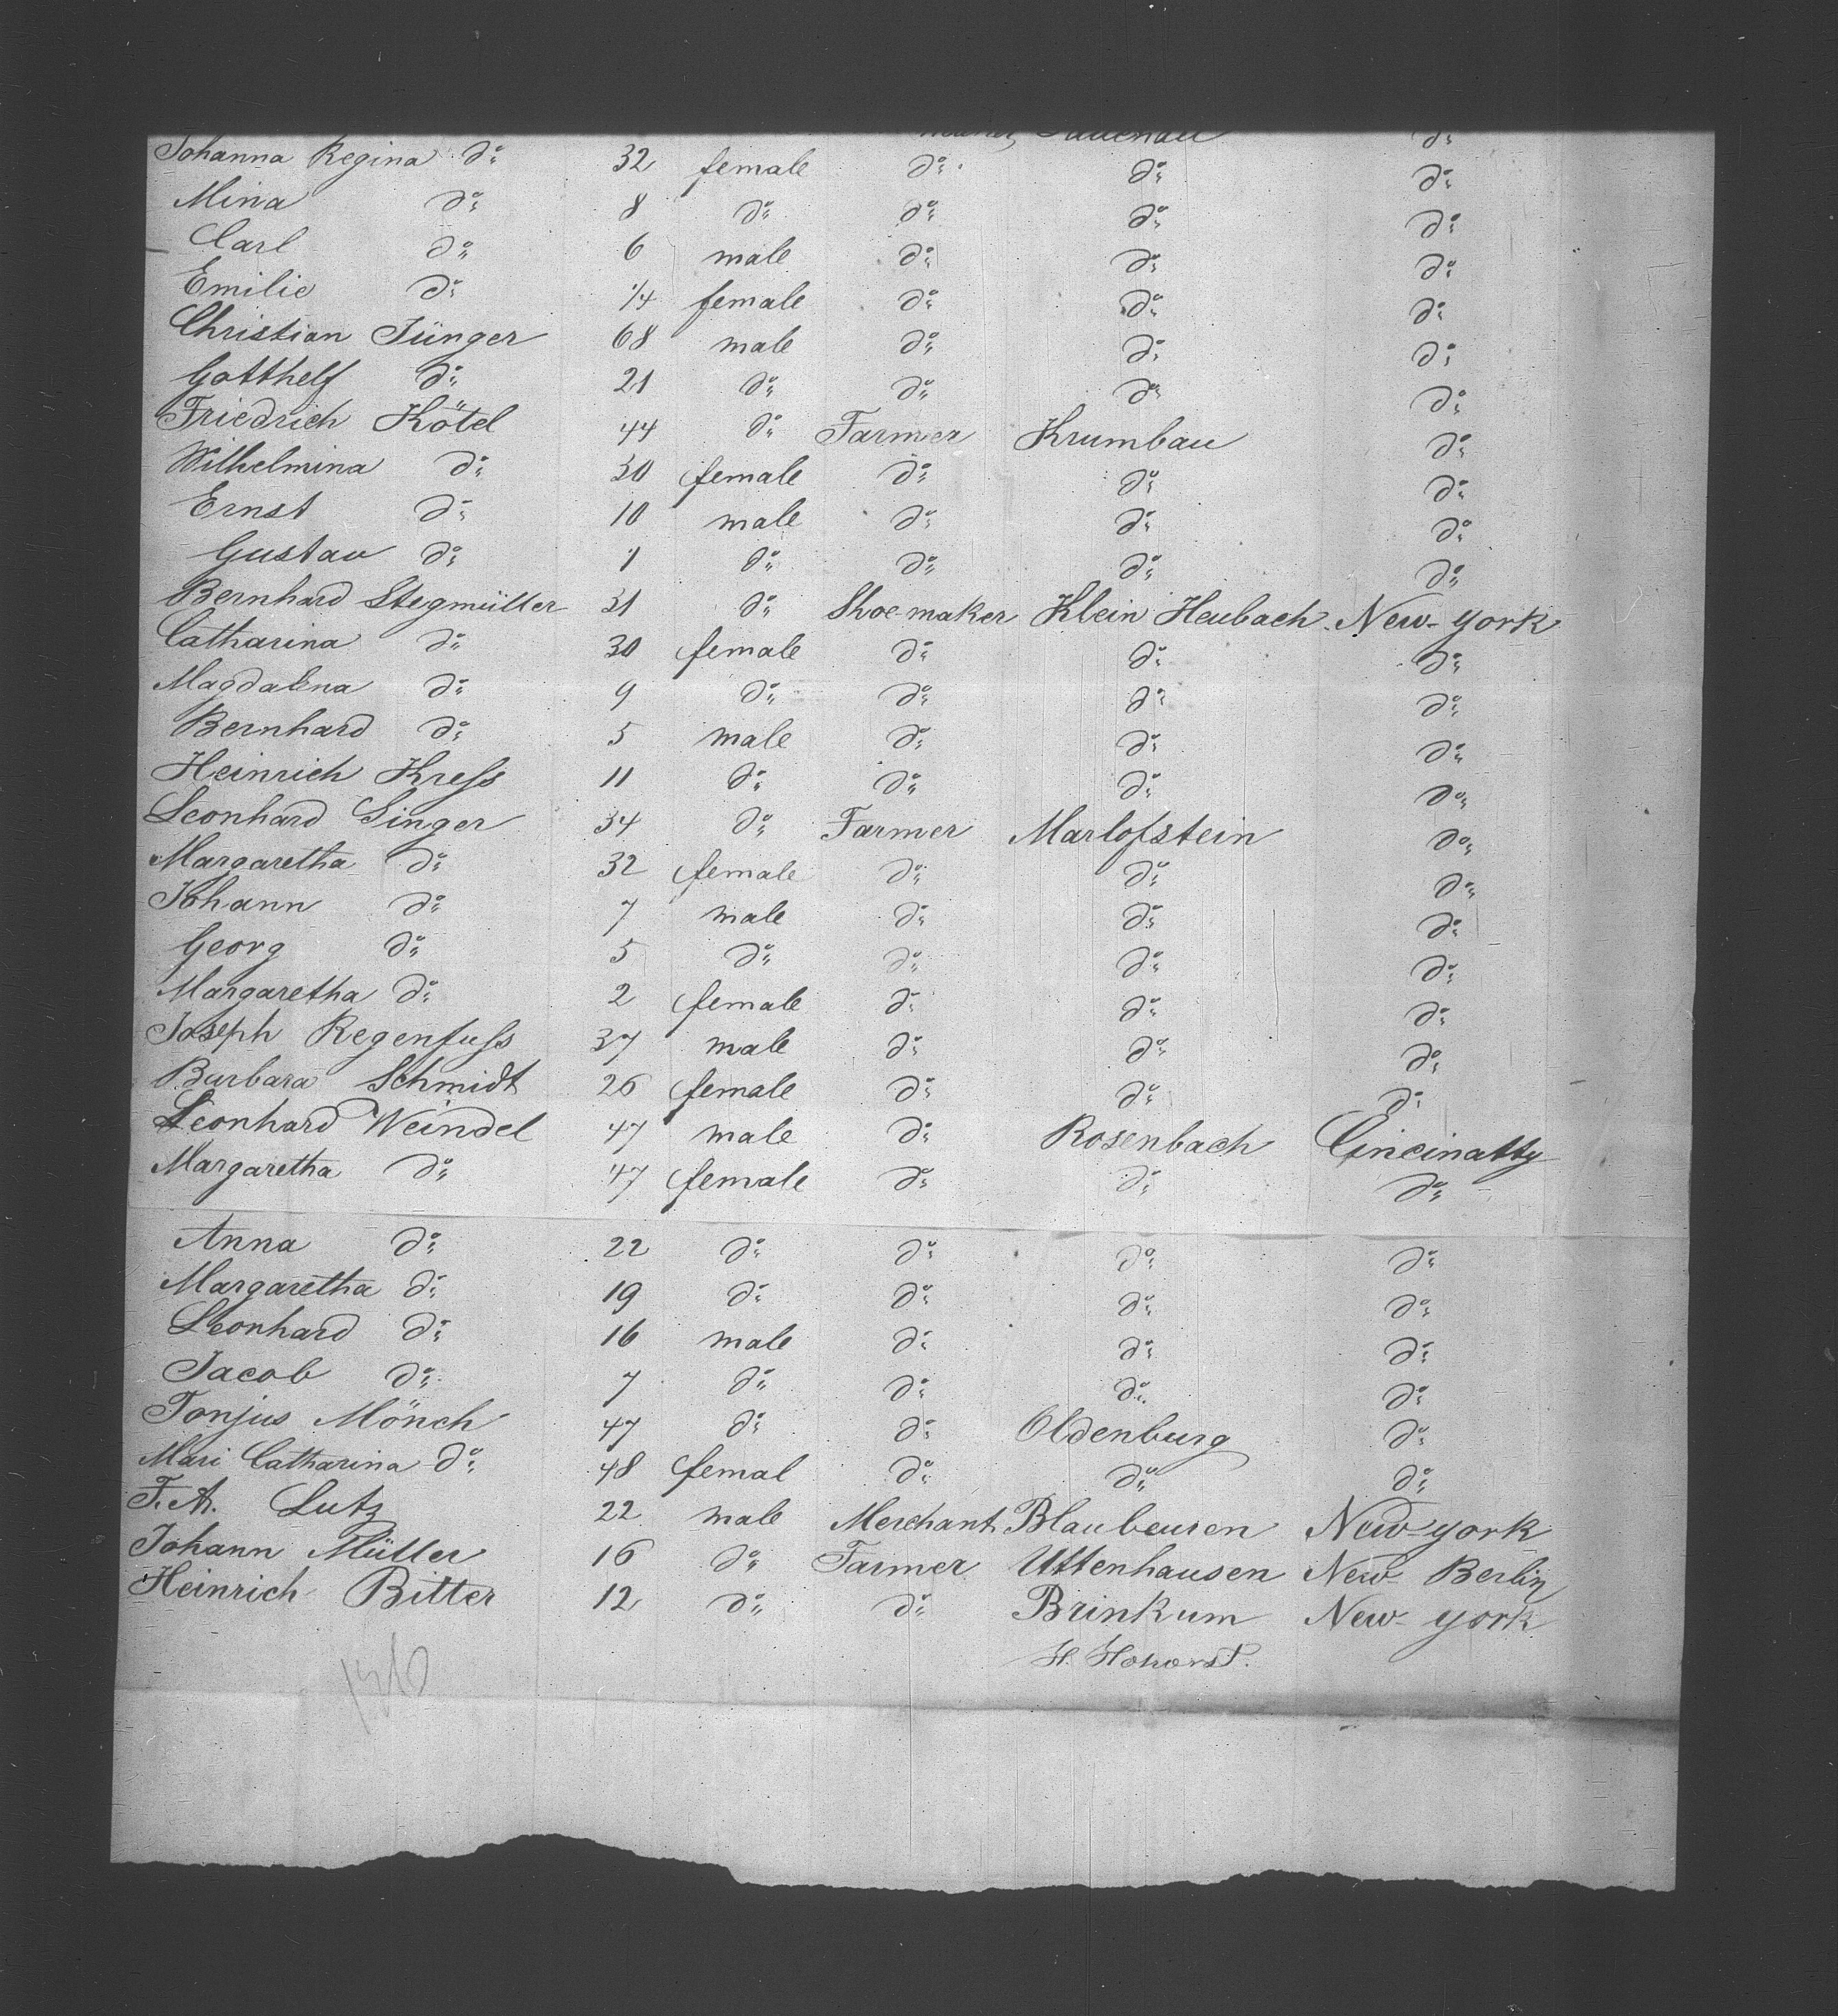 do
Johanna Regina do 32 female do do do
Mina do 8 do do do do
Carl do 6 male do do do
Emilie do 1/4 female do do do
Christian Jünger 68 male do do do
Gotthelf do 21 do do do do
Friedrich Kötel 44 do Farmer Krumbau do
Wilhelmina do 30 female do do do
Ernst do 10 male do do do
Gustav do 1 do do do do
Bernhard Stegmüller 31 do Shoe-maker Klein Heubach New-York
Catharina do 30 female do do do
Magdalena do 9 do do do do
Bernhard do 5 male do do do
Heinrich Kreſs 11 do do do do
Leonhard Singer 34 do Farmer Marlofstein do
Margaretha do 32 female do do do
Johann do 7 male do do do
Georg do 5 do do do do
Margaretha do 2 female do do do
Joseph Regenfuſs 37 male do do do
Barbara Schmidt 26 female do do do
Leonhard Weindel 47 male do Rosenbach Cincinatty
Margaretha do 47 female do do do
Anna do 22 do do do do
Margaretha do 19 do do do do
Leonhard do 16 male do do do
Jacob do 7 do do do do
Tonjus Mönch 47 do do Oldenburg do
Mari Catharina do 48 femal do do do
F. A. Lutz 22 male Merchant Blaubeuren New-york
Johann Müller 16 do Farmer Uttenhausen New-Berlin
Heinrich Bitter 12 do do Brinkum New-york
H. Hohorst.